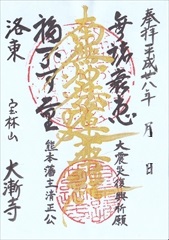 奉拝 平成廿八年 月 日
大震災復興祈願
無諸衰患
南無妙法蓮華経
福不可量
熊本藩主清正公
洛東
宝林山 大漸寺